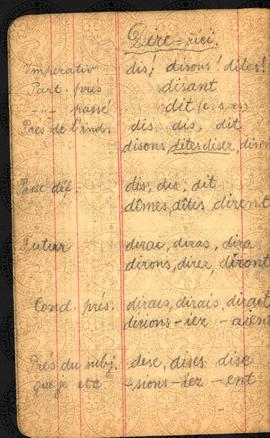 Dire = řici
Imperativ dis! disons! dites!
Part. prés disant
-"- passé dit (e, s, es)
Prés de l'ind. dis, dis, dit
disons, dites
Passé déf. dis, dis, dit
dîmes, dîtes dirent
Futur dirai, diras, dira
dirons, direz, diront
Cond. prés. dirais, dirais, dirait
dirions - iez - aient
Prés du subj. dise, dises dise
que je etc -sions - iez - ent